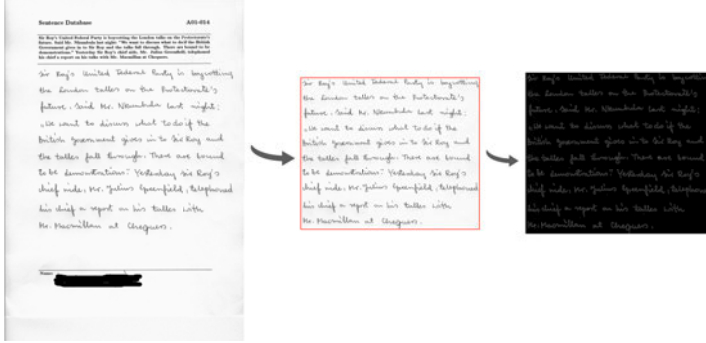 Sentence Database A01-014
Sir Roy's United Federal Party is boycotting the London talks on the Protectorate's
future. Said Mr. Nkumbula last night: "We want to discuss what to do if the British
Government gives in to Sir Roy and the talks fall through. There are bound to be
demonstrations." Yesterday Sir Roy's chief aide, Mr. Julius Greenfield, telephoned
his chief a report on his talks with Mr. Macmillan at Chequers.
Sir Roy's United Federal Party is boycotting
the London talks on the Protectorate's
future. Said Mr. Nkumbula last night:
"We want to discuss what to do if the
British Government gives in to Sir Roy and
the talks fall through. There are bound
to be demonstrations." Yesterday Sir Roy's
chief aide, Mr. Julius Greenfield, telephoned
his chief a report on his talks with
Mr. Macmillan at Chequers.
Name:
Sir Roy's United Federal Party is boycotting
the London talks on the Protectorate's
future. Said Mr. Nkumbula last night:
"We want to discuss what to do if the
British Government gives in to Sir Roy and
the talks fall through. There are bound
to be demonstrations." Yesterday Sir Roy's
chief aide, Mr. Julius Greenfield, telephoned
his chief a report on his talks with
Mr. Macmillan at Chequers.
Sir Roy's United Federal Party is boycotting
the London talks on the Protectorate's
future. Said Mr. Nkumbula last night:
"We want to discuss what to do if the
British Government gives in to Sir Roy and
the talks fall through. There are bound
to be demonstrations." Yesterday Sir Roy's
chief aide, Mr. Julius Greenfield, telephoned
his chief a report on his talks with
Mr. Macmillan at Chequers.